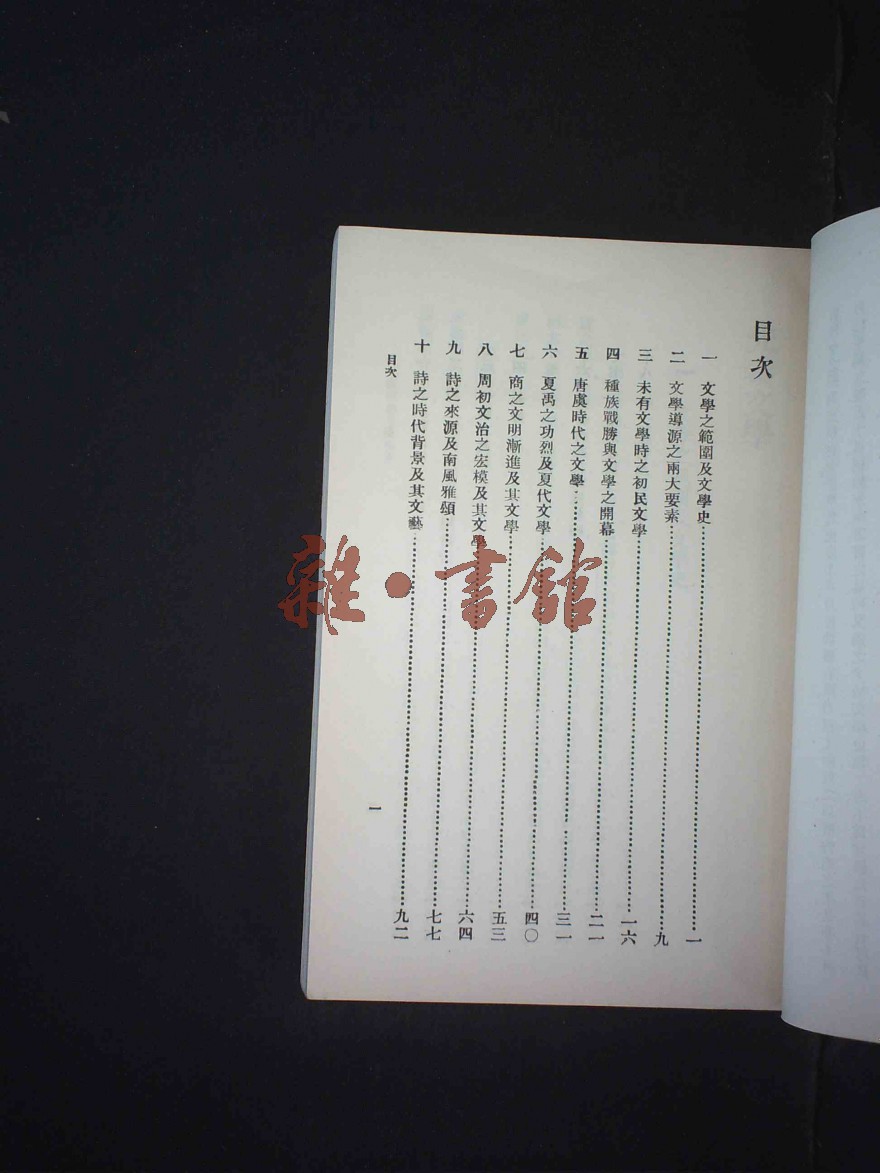 目次
一 文學之範圍及文學史……一
二 文學導源之兩大要素……九
三 未有文學時之初民文學……一六
四 種族戰勝與文學之開幕……二一
五 唐虞時代之文學……三一
六 夏禹之功烈及夏代文學……四〇
七 商之文明漸進及其文學……五三
八 周初文治之宏模及其文學……六四
九 詩之來源及南風雅頌……七七
十 詩之時代背景及其文藝……九二
目次
一
雜·書館